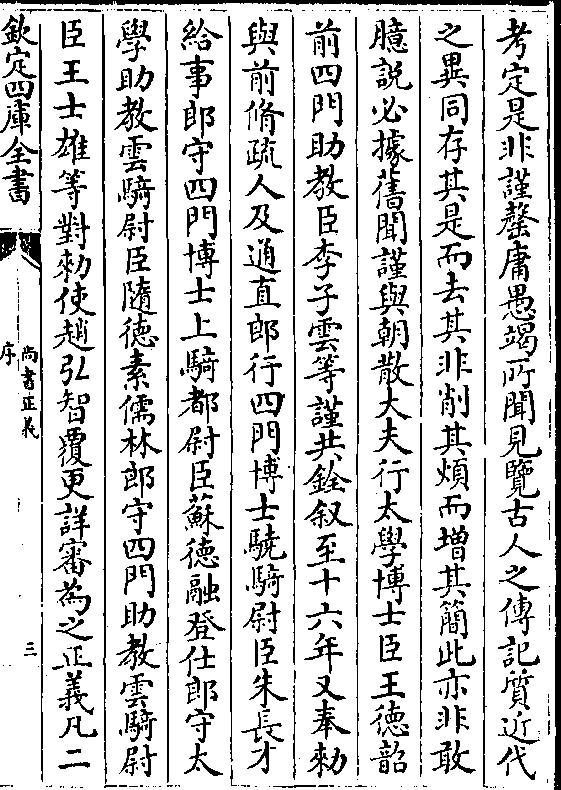 考定是非謹罄庸愚竭所聞見覽古人之傳記質近代
之異同存其是而去其非削其煩而增其簡此亦非敢
臆説必據舊聞謹與朝散大夫行太學博士臣王德韶
前四門助教臣李子雲等謹共銓叙至十六年又奉勑
與前脩疏人及通直郎行四門博士驍騎尉臣朱長才
給事郎守四門博士上騎都尉臣蘇德融登仕郎守太
學助教雲騎尉臣隨德素儒林郎守四門助教雲騎尉
臣王士雄等對勑使趙弘智覆更詳審為之正義凡二
欽定四庫全書
尚書正義
序
三